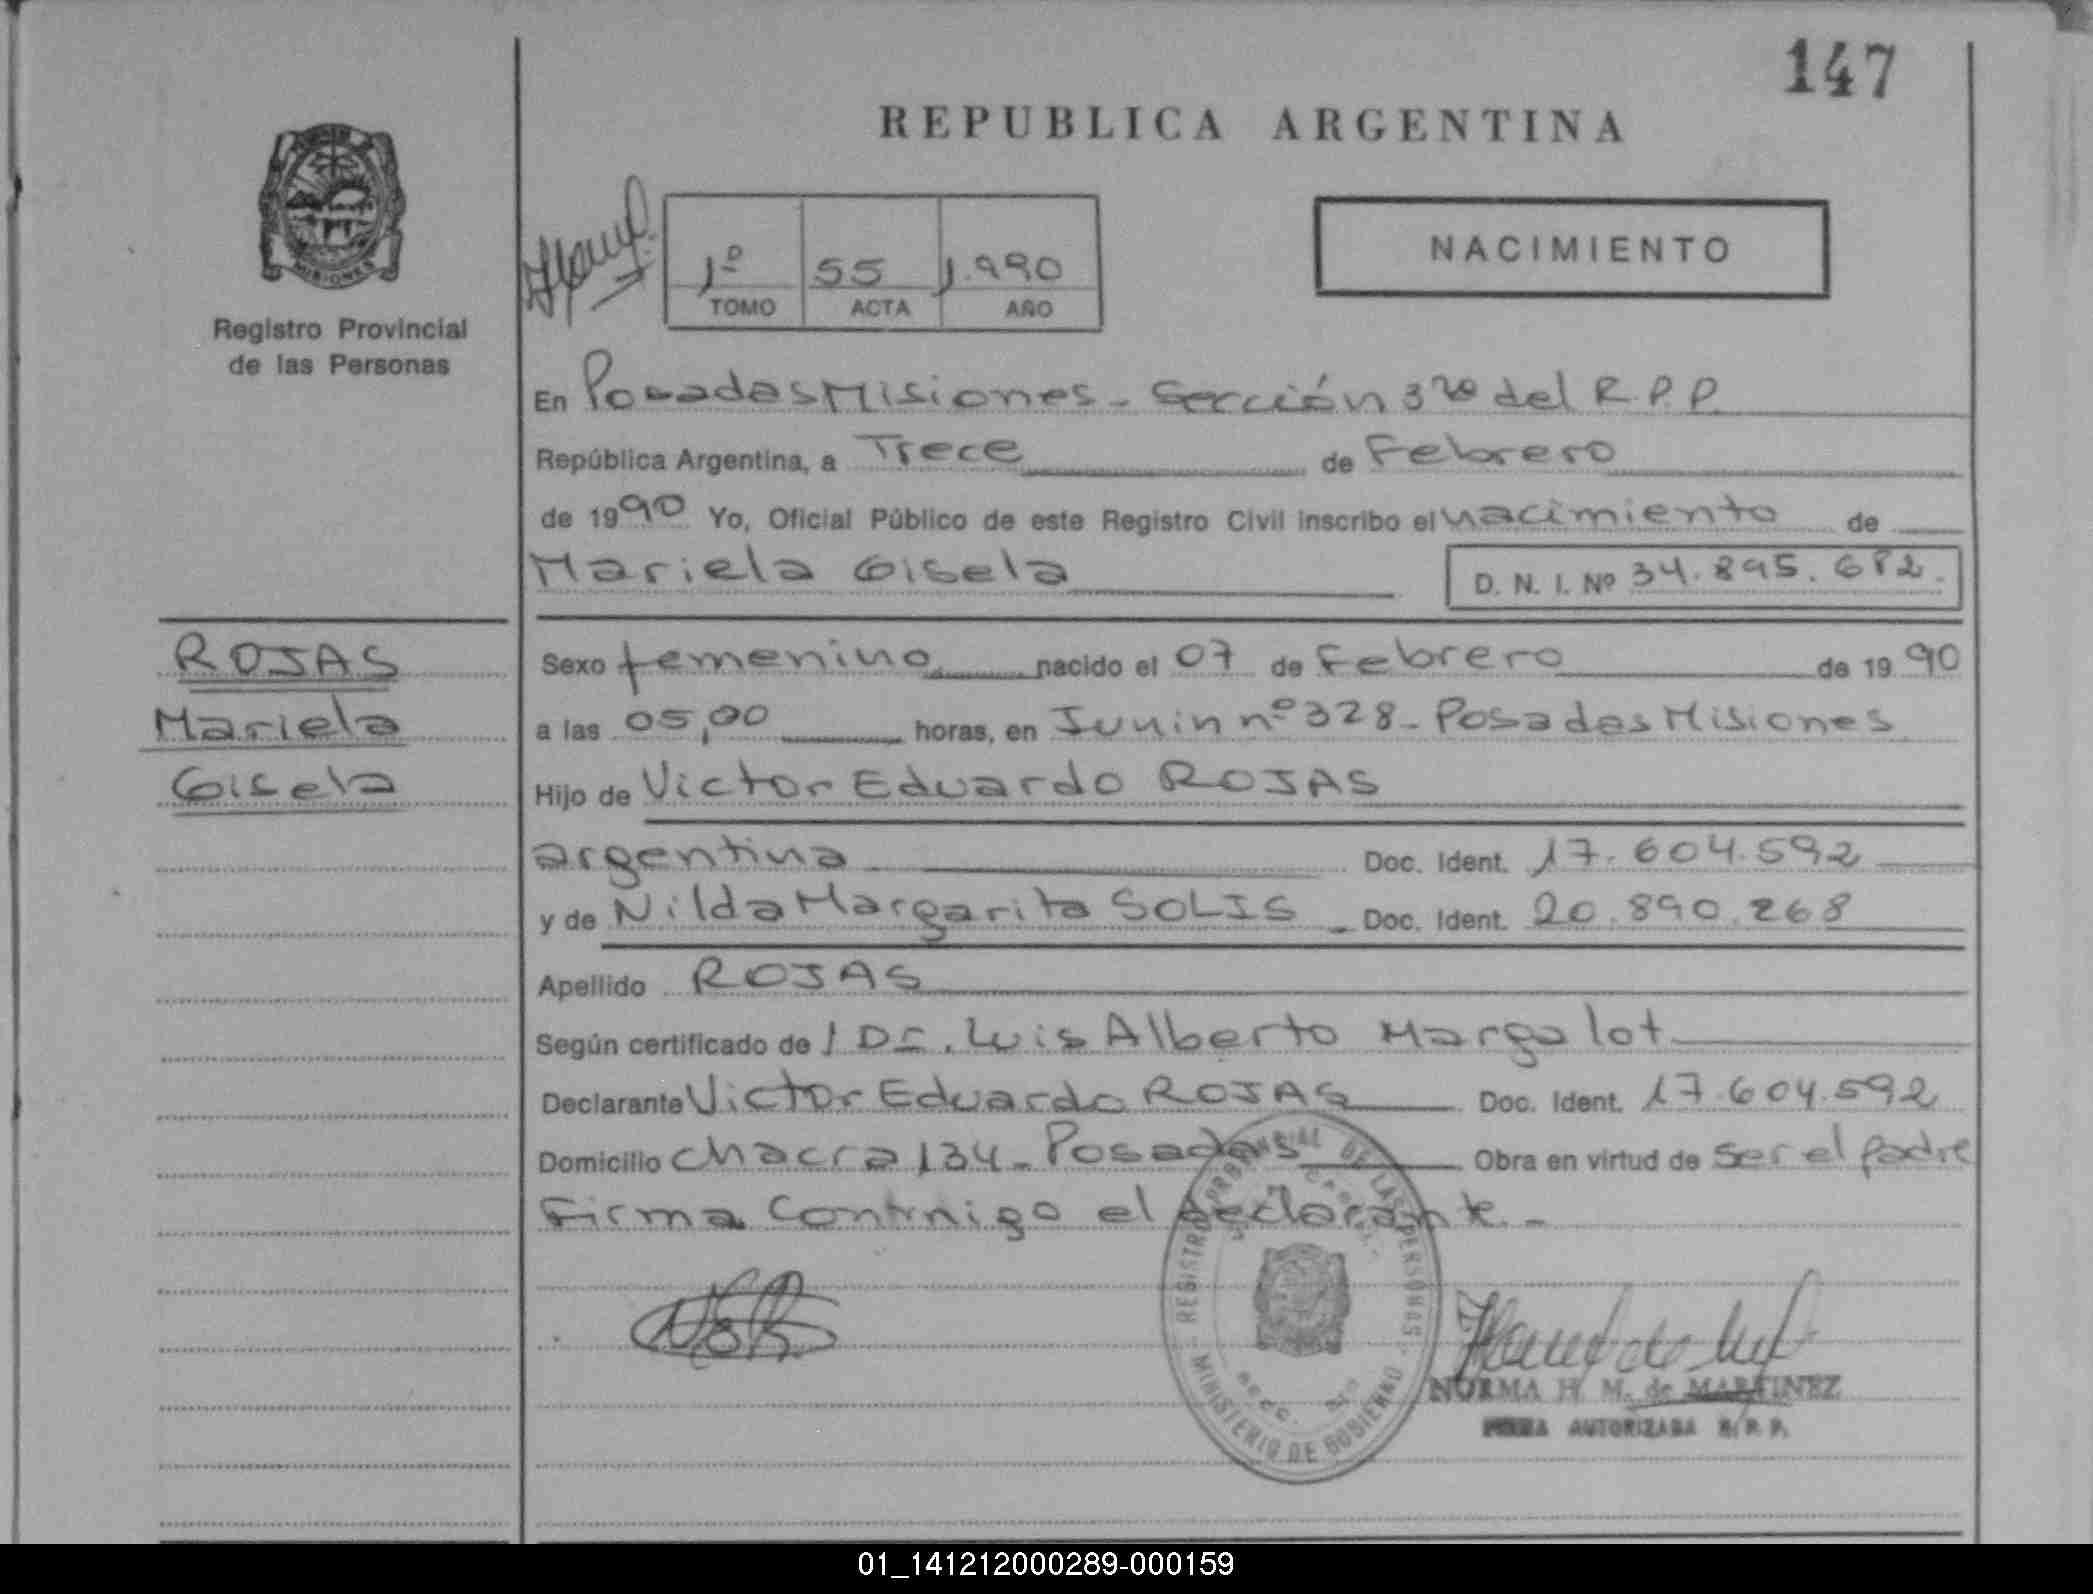 147
REPUBLICA ARGENTINA
MISIONES
Registro Provincial
de las Personas
1º 55 1.990
TOMO ACTA AÑO
NACIMIENTO
En Posadas Misiones - Sección 3ra del R.P.P.
República Argentina, a Trece de Febrero
de 1990 Yo, Oficial Público de este Registro Civil inscribo el nacimiento de
Mariela Gisela D. N. I. Nº 34.895.682.
ROJAS
Mariela
Gisela
Sexo femenino nacido el 07 de Febrero de 1990
a las 05,00 horas, en Junin nº 328 - Posadas Misiones
Hijo de Victor Eduardo ROJAS
argentina Doc. Ident. 17.604.592
y de Nilda Margarita SOLIS - Doc. Ident. 20.890.268
Apellido ROJAS
Según certificado de / Dr. Luis Alberto Margalot
Declarante Victor Eduardo ROJAS Doc. Ident. 17.604.592
Domicilio chacra 134 - Posadas Obra en virtud de ser el padre
Firma Conmigo el declarante. -
REGISTRO PROVINCIAL DE LAS PERSONAS
MINISTERIO DE GOBIERNO
NORMA H. M. de MARTINEZ
FIRMA AUTORIZADA R. P. P.
01_141212000289-000159